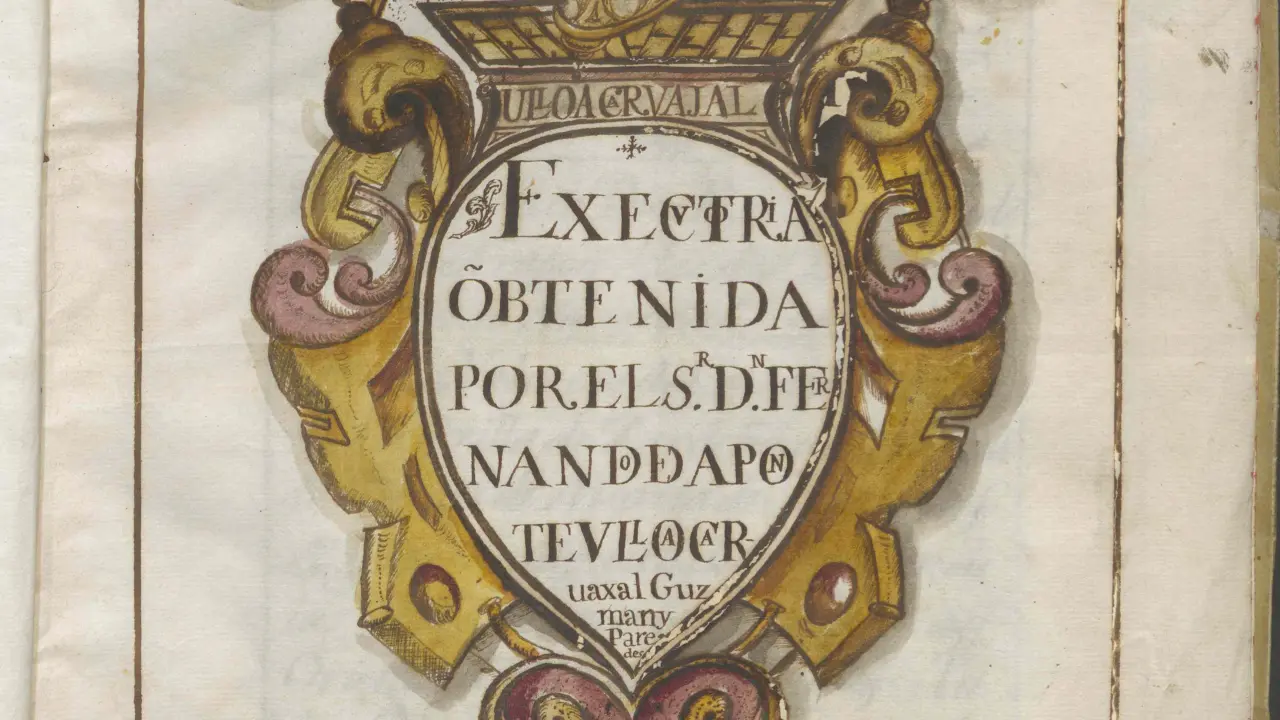 ULLOACARVAJAL
EXECVTORiA
ÕBTENiDA
POR EL S.R D.N FER
NANDO DE APON
TE VLLOA CAR-
uaxal Guz
man y
Pare
des